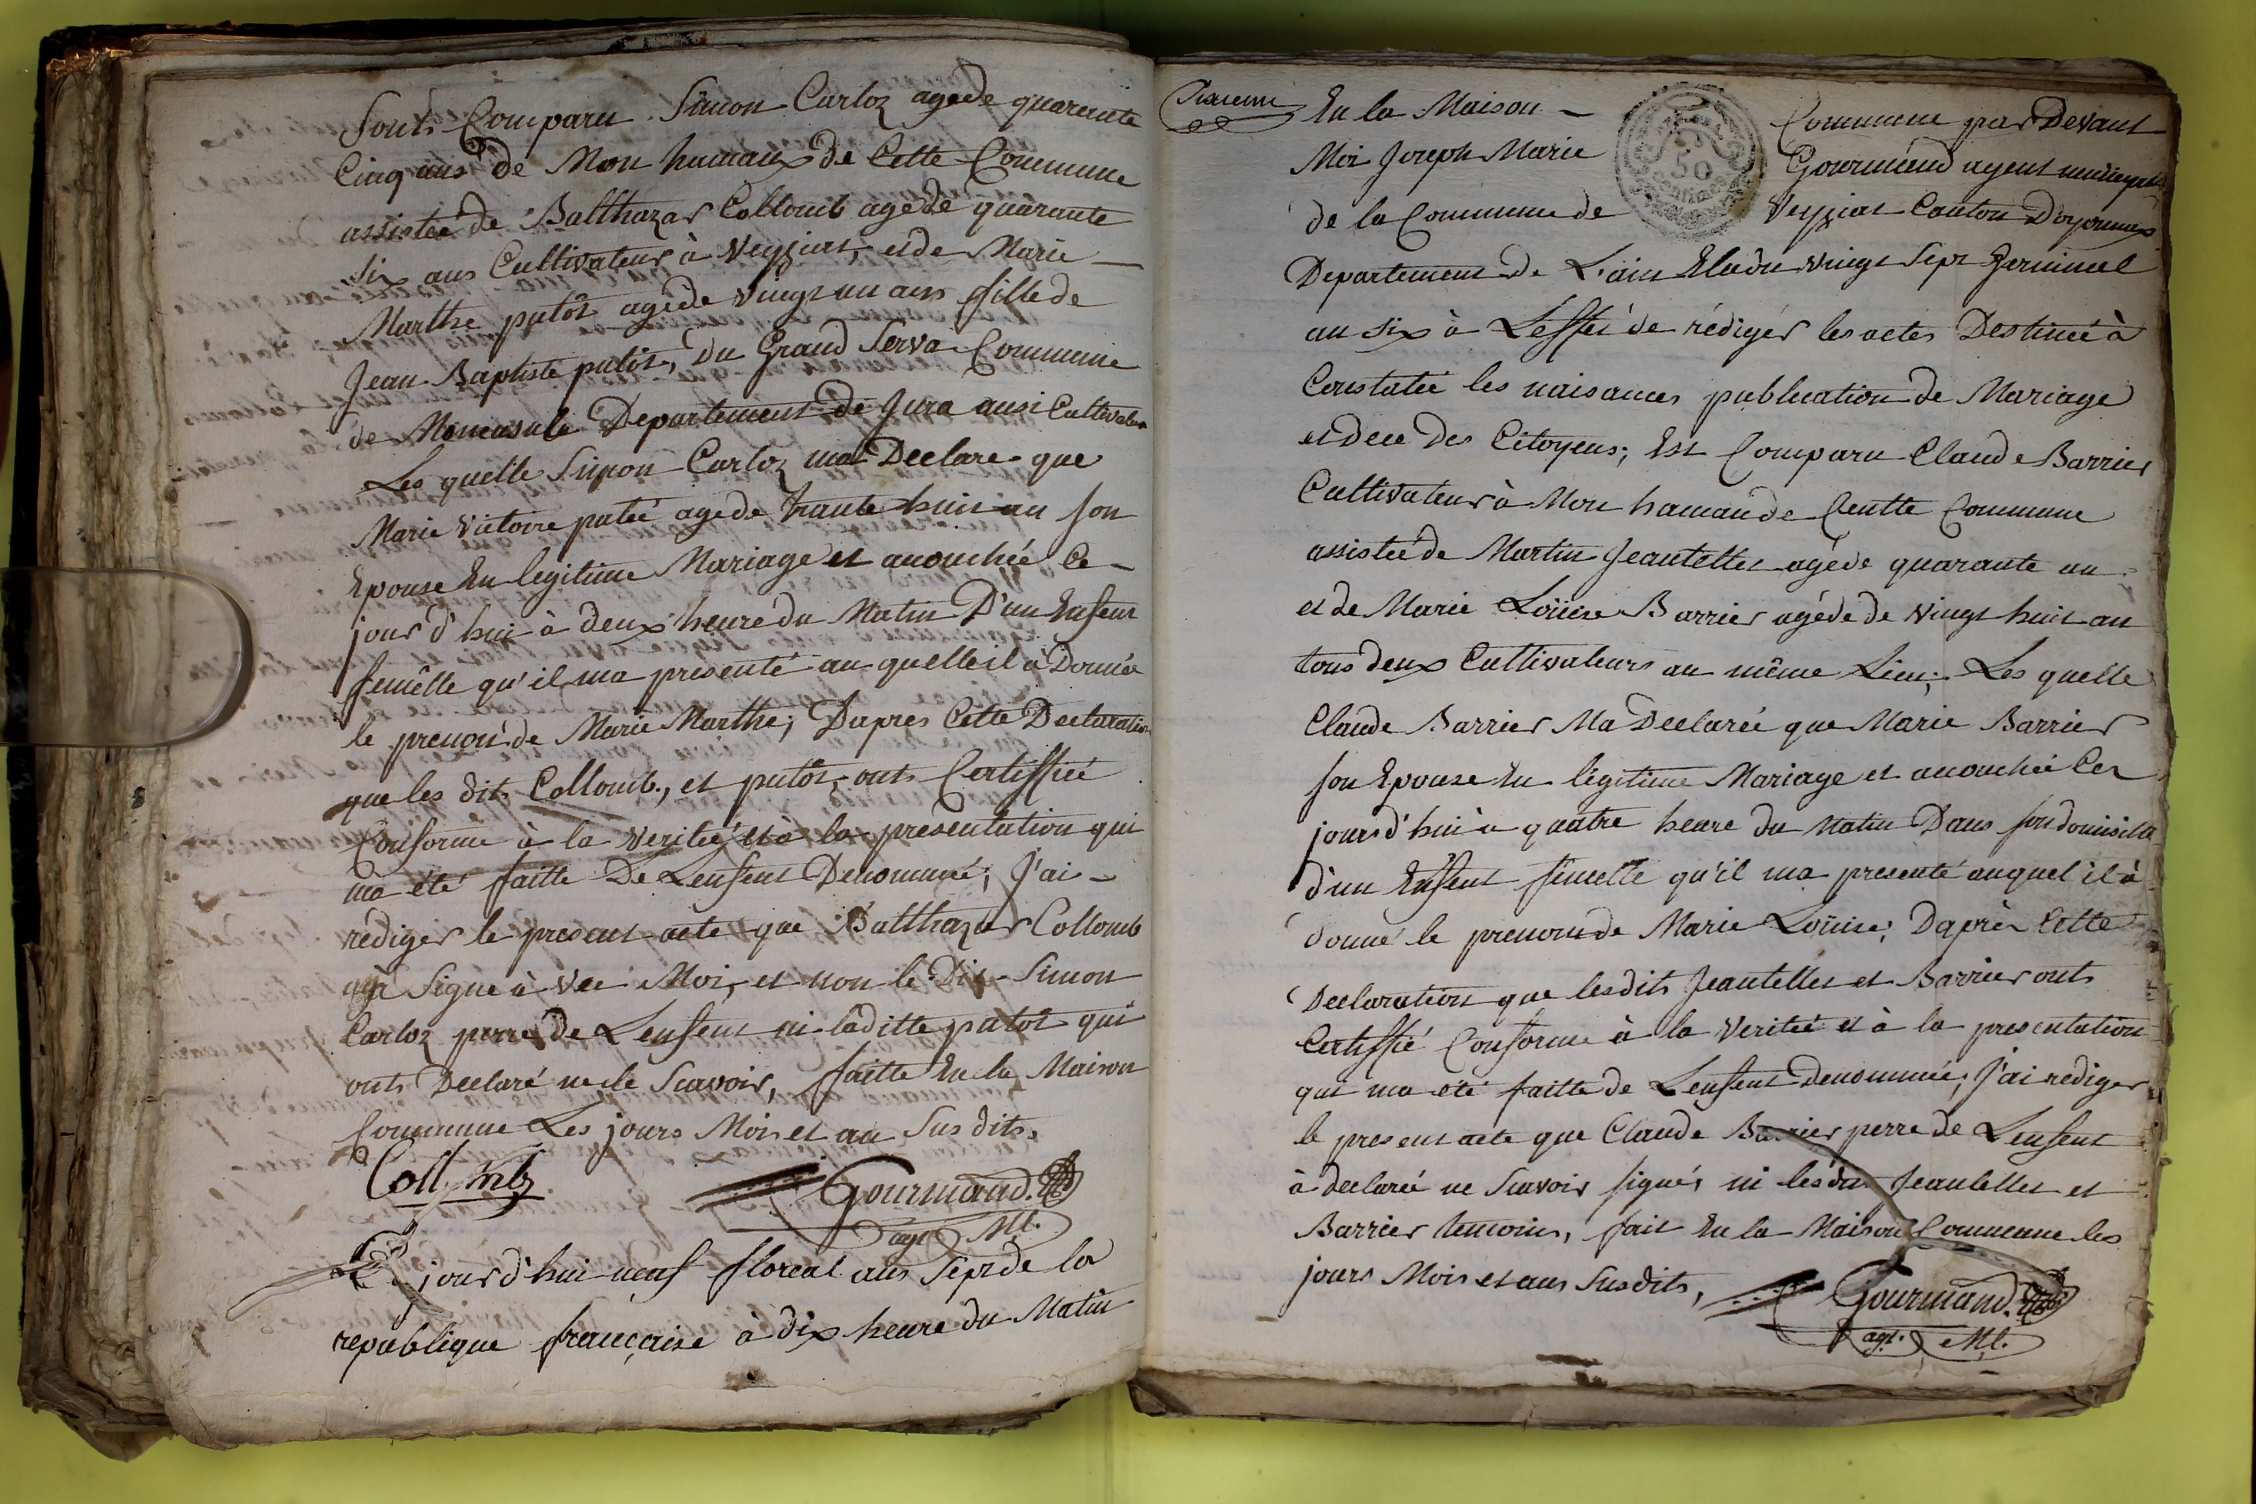 Sonts Comparu Simon Carloz agede quarente
Cinq ans de Mon hamaux de Cette Commune
assistée de Balthazar Collomb agede quarante
six ans Cultivateur à Veyziat, et de Marie
Marthe putôt agede vingt un ans fille de
Jean Baptiste putôt, du Grand Serva Commune
de Departement de Jura ausi Cultivateur
Les quelle Simon Carloz ma Declare que
Marie Victoire putée agede trante huit an son
Epouse En legitime Mariage et acouchée Ce
jour d'hui à deux heure du Matin D'un Enfent
femêlle qu'il ma presenté au quelle il à Donnée
le prenon de Marie Marthe; Dapres Cette Declaration
que les dits Collomb, et putôt, onts Certiffiée
Conforme à la veritée et à la presentution qui
ma été faitte De Lenfent Denommé; J'ai
rediger le present acte que Balthazar Collomb
à Signe à vec Moi, et non le Dit Simon
Carloz perre de Lenfent ni laditte putôt qui
onts Declaré ne le Scavoir, faitte En la Maison
Commune Les jours Mois et an Sus dits.
Collomb
Gourmand.
agt Ml.
Ce jour d'hui neuf floreal ans Sept de la
republique française à dix heure du Matin
En la Maison Commune par Devant
Moi Joseph Marie Gourmand agent municipal
50
centimes
de la Commune de Veyziat Canton Doyonnax
Departement de L'ain Elu du vingt Sept Germinal
an six à Leffei de rédiger les actes Destinée à
Constatée les naisances publication de Mariage
et dece des Citoyens; Est Comparu Claude Barrier
Cultivateur à Mon hamau de Centte Commune
assistée de Martin Jeantellet agéde quarante an
et de Marie Loüise Barrier agéde de vingt huit an
tous deux Cultivateurs au même Lieu; Les quelle
Claude Barrier Ma Declarée que Marie Barrier
son Epouse En légitime Mariage et acouchée Ce
jours d'hui à quatre heure du Matin Dans son domisille
d'un Enfent fimelle qu'il ma presenté auquel il à
donné le prenom de Marie Loüise; Daprès Cette
Declaration que lesdits Jeantellet et Barrier onts
Certiffié Conforme à la Veritée et à la presentation
qui ma eté faitte de Lenfent Denommée; J'ai rediger
le present acte que Claude Barrier perre de Lenfent
à declarée ne Scavoir signé, ni lesdits Jeantellet et
Barrier temoins, fait En la Maison Commune les
jours Mois et ans Susdits,
Gourmand.
agt. Ml.